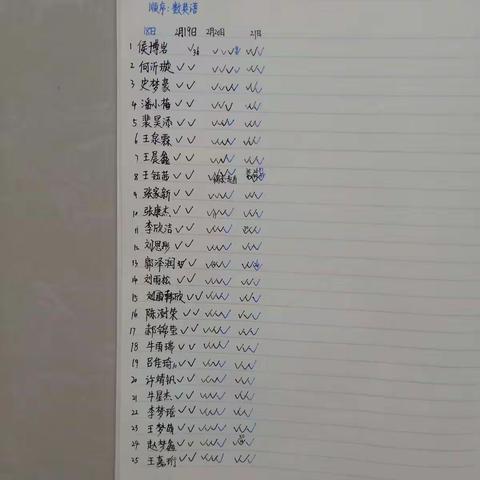 顺序:数英语
18日 2月19日 2月20日 21日
1 侯博岩 ✓36 ✓✓✓ ✓✓
2 何沂璇 ✓✓ ✓✓✓ ✓✓
3 史梦豪 ✓✓ ✓✓✓ ✓✓
4 潘小梅 ✓✓ ✓✓✓ ✓✓
5 裴昊添 ✓✓ ✓✓✓ ✓✓
6 王泉霖 ✓✓ ✓✓✓ ✓✓
7 王晨鑫 ✓✓ ✓✓✓ ✓✓
8 王钰茜 ✓✓ ✓✓✓
9 张家新 ✓✓ ✓✓✓ ✓✓
10 张康杰 ✓✓ ✓✓✓ ✓✓
11 李欣洁 ✓✓ ✓✓✓ ✓✓
12 刘思彤 ✓✓ ✓✓✓ ✓✓
13 郭泽润 ✓✓ ✓✓✓ ✓✓
14 刘雨松 ✓✓ ✓✓✓ ✓✓
15 刘雨欣 ✓✓ ✓✓✓ ✓✓
16 陈澍荣 ✓✓ ✓✓✓ ✓✓
17 郝锦莹 ✓✓ ✓✓✓ ✓✓
18 牛雨瑞 ✓✓ ✓✓✓ ✓✓
19 吕佳琦 ✓✓ ✓✓✓ ✓✓
20 许婧钒 ✓✓ ✓✓✓ ✓✓
21 牛星杰 ✓✓ ✓✓✓ ✓✓
22 李梦瑶 ✓✓ ✓✓✓ ✓✓
23 王梦雄 ✓✓ ✓✓✓ ✓✓
24 赵梦鑫 ✓✓ ✓✓✓ ✓✓
25 王嘉珩 ✓✓ ✓✓✓ ✓✓